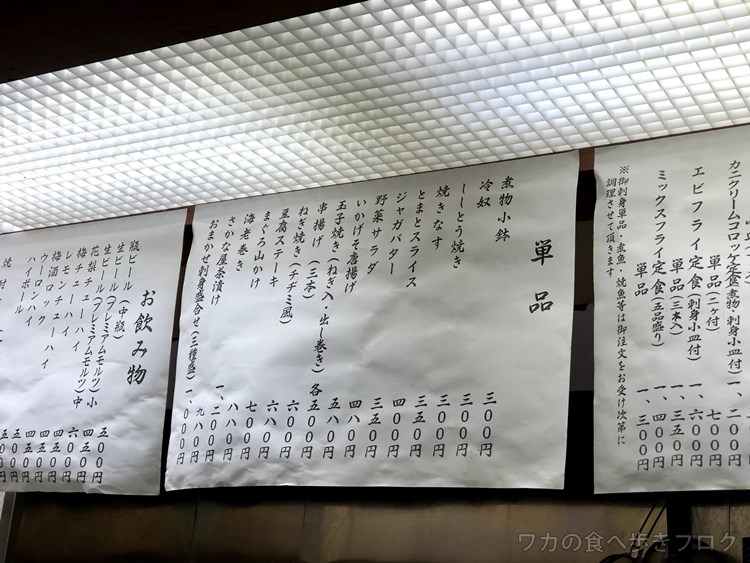 カニクリームコロッケ定食(煮物、刺身小皿付) 一、二〇〇円
単品(二ヶ付) 七〇〇円
エビフライ定食(刺身小皿付) 一、六〇〇円
単品(三本入) 一、三五〇円
ミックスフライ定食(五品盛り) 一、四〇〇円
単品 一、三〇〇円
※御刺身単品・煮魚・焼魚等は御注文をお受け次第に
調理させて頂きます
単品
煮物小鉢 三〇〇円
冷奴 三〇〇円
ししとう焼き 三〇〇円
焼きなす
とまとスライス
ジャガバター 四〇〇円
野菜サラダ 三五〇円
いかげそ唐揚げ 四八〇円
玉子焼き(ねぎ入・出し巻き) 各
串揚げ(三本)
ねぎ焼き(チヂミ風) 六〇〇円
豆腐ステーキ 六八〇円
まぐろ山かけ 七〇〇円
海老巻き 八八〇円
さかな屋茶漬け
おまかせ刺身盛合せ(三種盛) 一、〇〇〇円
お飲み物
瓶ビール(中瓶) 五五〇円
生ビール(プレミアムモルツ)小 四五〇円
生ビール(プレミアムモルツ)中 六〇〇円
花梨チューハイ
梅チューハイ
レモンチューハイ
梅酒ロック
ウーロンハイ
ハイボール
ワカの食べ歩きブログ